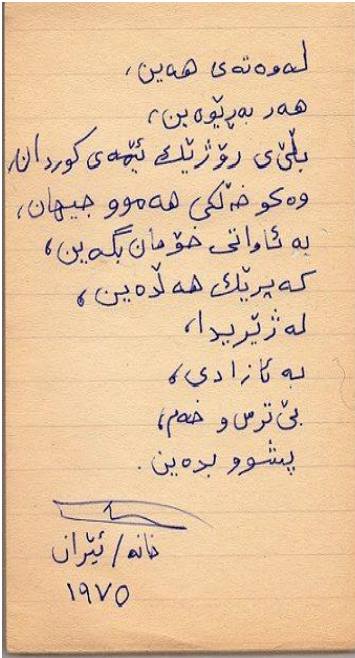 لەوەتەی هەین،
هەر بەڕێوەین،
بڵێی ڕۆژێک ئێمەی کوردان،
وەکو خەڵکی هەموو جیهان،
بە ئاواتی خۆمان بگەین،
کەپرێک هەڵدەین،
لە ژێریدا،
بە ئازادی،
بێ ترس و خەم،
پشوو بدەین.
خانە/ئێران
١٩٧٥